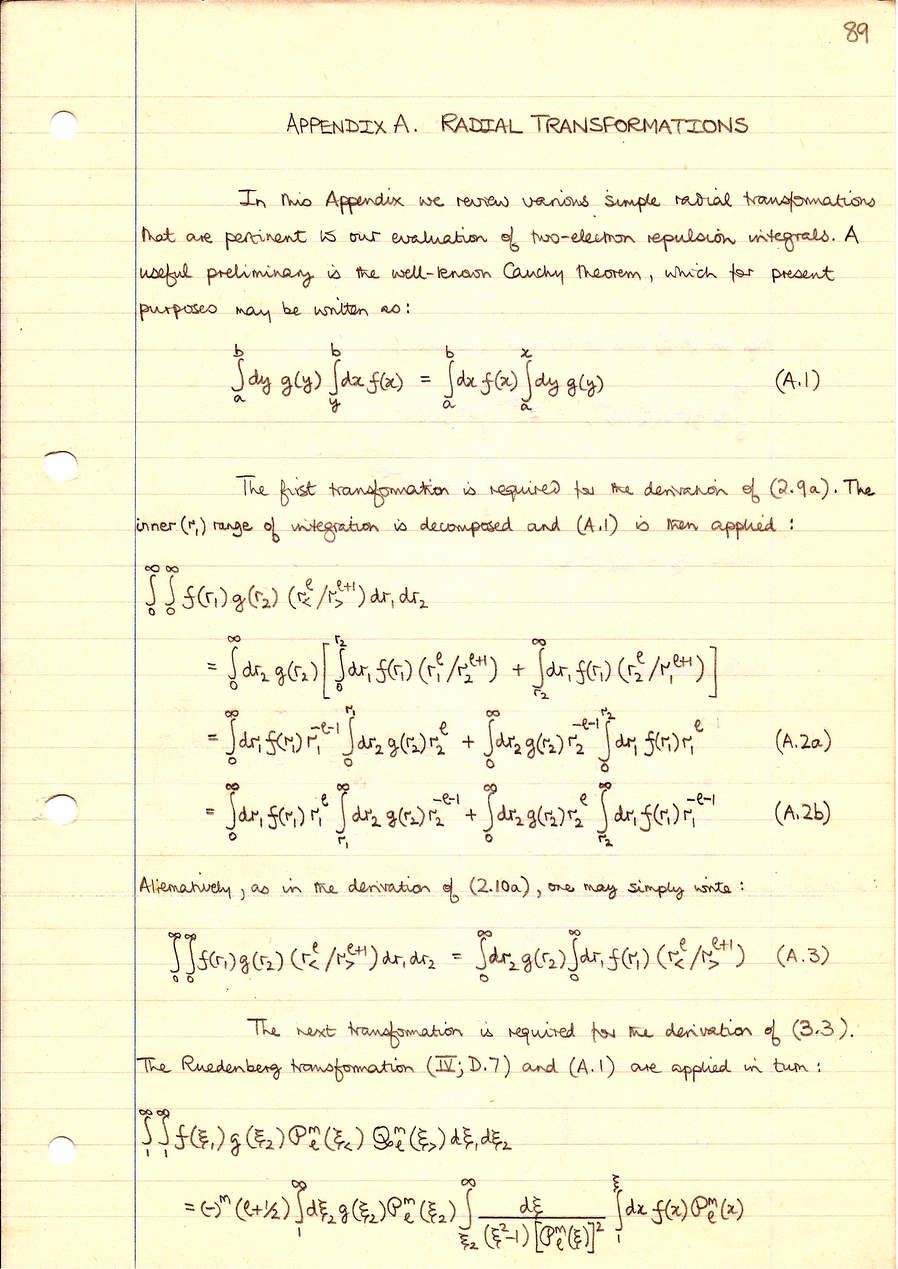 89
APPENDIX A. RADIAL TRANSFORMATIONS
In this Appendix we review various simple radial transformations
that are pertinent to our evaluation of two-electron repulsion integrals. A
useful preliminary is the well-known Cauchy theorem, which for present
purposes may be written as:
∫_a^b dy g(y) ∫_y^b dx f(x) = ∫_a^b dx f(x) ∫_a^x dy g(y) (A.1)
The first transformation is required for the derivation of (2.9a). The
inner (r₁) range of integration is decomposed and (A.1) is then applied :
∫_0^∞ ∫_0^∞ f(r₁) g(r₂) (r_<^ℓ / r_>^{ℓ+1}) dr₁ dr₂
= ∫_0^∞ dr₂ g(r₂) [ ∫_0^{r₂} dr₁ f(r₁) (r₁^ℓ / r₂^{ℓ+1}) + ∫_{r₂}^∞ dr₁ f(r₁) (r₂^ℓ / r₁^{ℓ+1}) ]
= ∫_0^∞ dr₁ f(r₁) r₁^{-ℓ-1} ∫_0^{r₁} dr₂ g(r₂) r₂^ℓ + ∫_0^∞ dr₂ g(r₂) r₂^{-ℓ-1} ∫_0^{r₂} dr₁ f(r₁) r₁^ℓ (A.2a)
= ∫_0^∞ dr₁ f(r₁) r₁^ℓ ∫_{r₁}^∞ dr₂ g(r₂) r₂^{-ℓ-1} + ∫_0^∞ dr₂ g(r₂) r₂^ℓ ∫_{r₂}^∞ dr₁ f(r₁) r₁^{-ℓ-1} (A.2b)
Alternatively, as in the derivation of (2.10a), one may simply write :
∫_0^∞ ∫_0^∞ f(r₁) g(r₂) (r_<^ℓ / r_>^{ℓ+1}) dr₁ dr₂ = ∫_0^∞ dr₂ g(r₂) ∫_0^∞ dr₁ f(r₁) (r_<^ℓ / r_>^{ℓ+1}) (A.3)
The next transformation is required for the derivation of (3.3).
The Ruedenberg transformation (IV; D.7) and (A.1) are applied in turn :
∫_1^∞ ∫_1^∞ f(ξ₁) g(ξ₂) P_ℓ^m(ξ_<) Q_ℓ^m(ξ_>) dξ₁ dξ₂
= (-)^m (ℓ+1/2) ∫_1^∞ dξ₂ g(ξ₂) P_ℓ^m(ξ₂) ∫_{ξ₂}^∞ dξ / ((ξ²-1) [P_ℓ^m(ξ)]²) ∫_1^ξ dx f(x) P_ℓ^m(x)